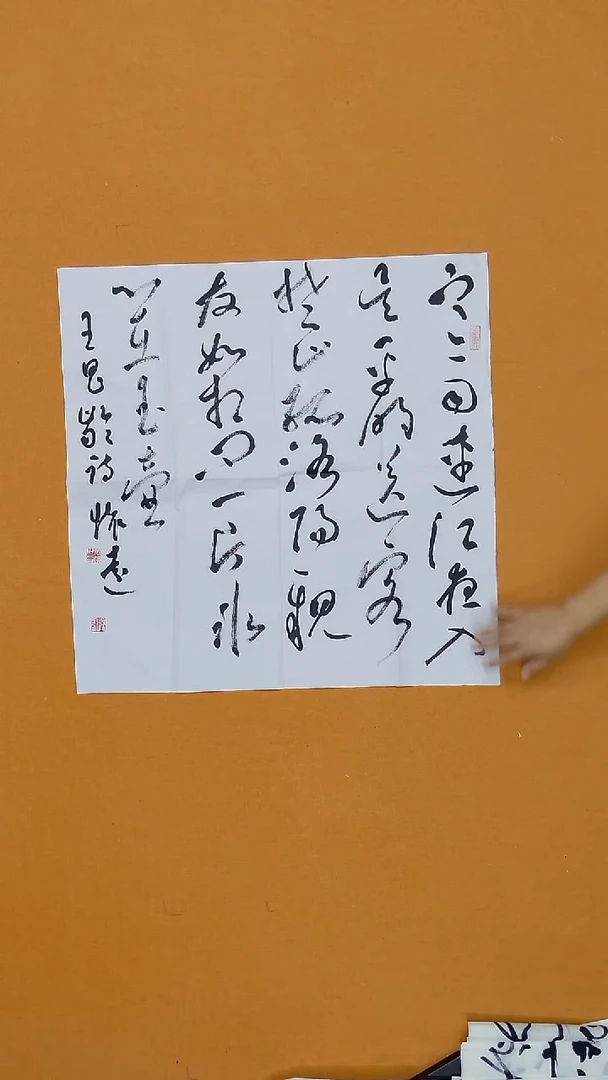 寒雨連江夜入
吴平明送客
楚山孤洛陽親
友如相问一片冰
心在玉壶
王昌齡诗